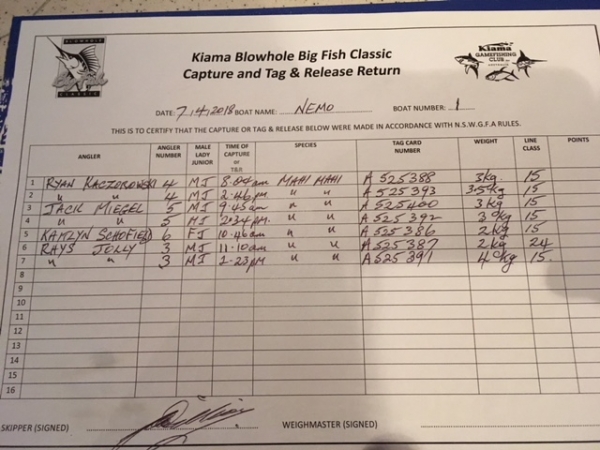 Kiama Blowhole Big Fish Classic
Capture and Tag & Release Return
Kiama
GAMEFISHING
CLUB INC
DATE: 7/4/2018 BOAT NAME: NEMO BOAT NUMBER: 1
THIS IS TO CERTIFY THAT THE CAPTURE OR TAG & RELEASE BELOW WERE MADE IN ACCORDANCE WITH N.S.W.G.F.A RULES.
ANGLER ANGLER NUMBER MALE LADY JUNIOR TIME OF CAPTURE or T&R SPECIES TAG CARD NUMBER WEIGHT LINE CLASS POINTS
1 RYAN KACZOROWSKI 4 MJ 8:04am MAHI MAHI A 525388 3kg 15
2 " " 4 MJ 2:46pM " " A 525393 3.5kg 15
3 JACK MIEGEL 5 MJ 9.45am " " A 525400 3kg 15
4 " " 5 MJ 2:34pM. " " A 525392 3kg 15
5 KAMLYN SCHOFIELD 6 FJ 10.46am " " A 525386 2kg 15
6 RAYS JOLLY 3 MJ 11.10am " " A 525387 2kg 24
7 " " 3 MJ 1.23pM " " A 525391 4kg 15.
8
9
10
11
12
13
14
15
16
SKIPPER (SIGNED) WEIGHMASTER (SIGNED)